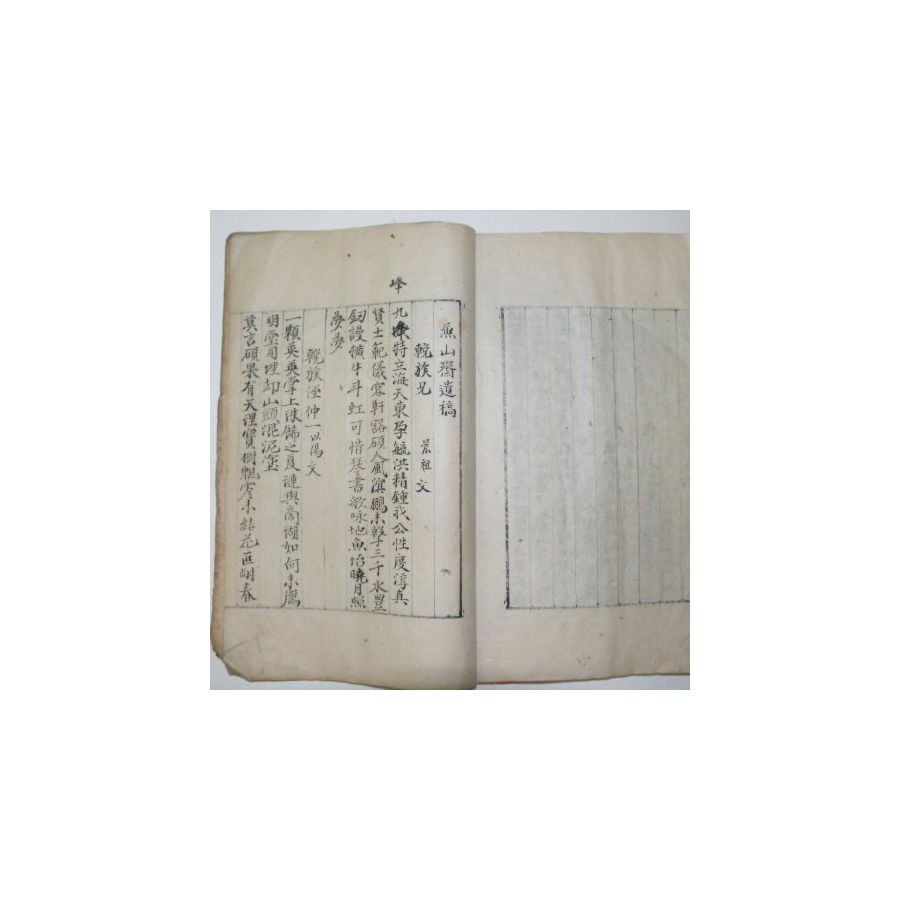 峰
燕山齋遺稿
輓族兄 景祖文
九峰特立海天東孕毓洪精鍾我公性度淳真
賢士範儀容軒豁碩人風溟鵬未擊三千水豐
釰謾橫牛斗虹可惜琴書歌咏地魚怡曉月照
夢夢
輓族侄仲一以陽文
一顆英英掌上珠儲之夏漣與商瑚如何未薦
明堂用埋却山頭混泥塗
莫言碩果有天理寶樹飄零未結花叵耐春